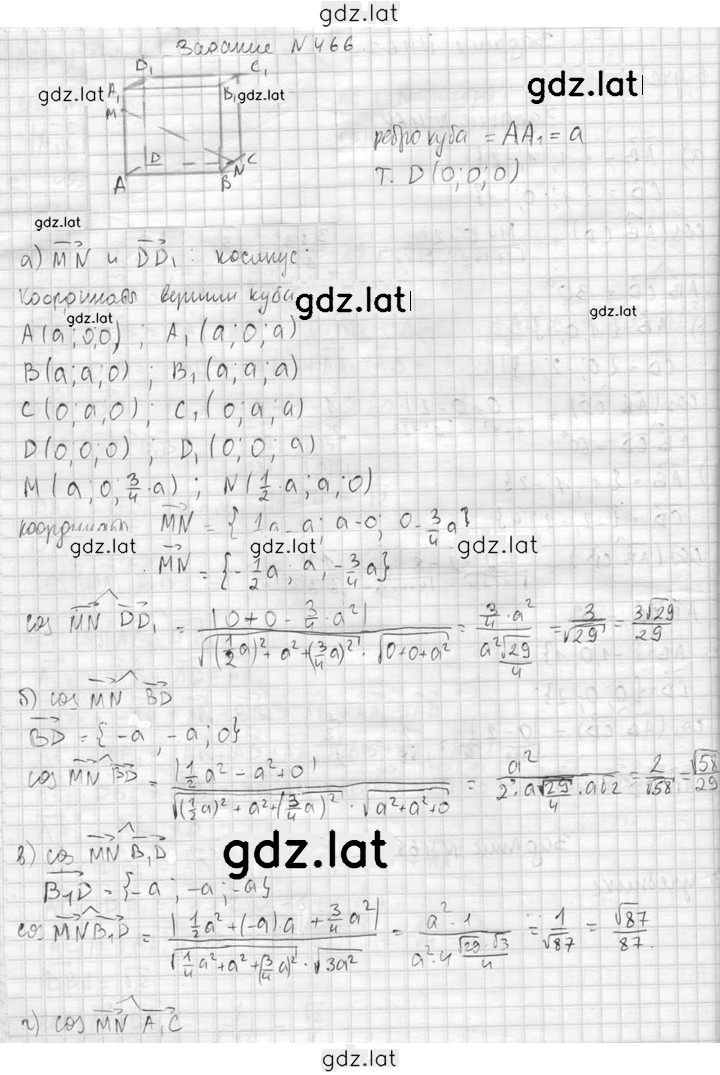 gdz.lat
Задание N 466
D₁ C₁
gdz.lat A₁ B₁ gdz.lat gdz.lat
M
ребро куба = AA₁ = a
D C
N
A B
т. D(0; 0; 0)
gdz.lat
а) MN и DD₁ : косинус:
Координаты вершин куба gdz.lat
gdz.lat gdz.lat
A(a; 0; 0) ; A₁(a; 0; a)
B(a; a; 0) ; B₁(a; a; a)
C(0; a; 0) ; C₁(0; a; a)
D(0; 0; 0) ; D₁(0; 0; a)
M(a; 0; 3/4·a) ; N(1/2·a; a; 0)
координаты MN = { 1a - a; a-0; 0-3/4a}
gdz.lat gdz.lat gdz.lat
MN = {-1/2a; a; -3/4a}
cos MN DD₁ = |0+0-3/4·a²| / √((1/2a)²+a²+(3/4a)²)·√(0+0+a²) = 3/4·a² / a²√29/4 = 3/√29 = 3√29/29
б) cos MN BD
BD = {-a, -a; 0}
cos MN BD = |1/2a² - a²+0| / √((1/2a)²+a²+(3/4a)²)·√(a²+a²+0) = a² / 2·a√29/4·a√2 = 2/√58 = √58/29
в) cos MN B₁D
gdz.lat
B₁D = {-a; -a; -a}
cos MN B₁D = |1/2a²+(-a)a+3/4a²| / √(1/4a²+a²+(3/4a)²)·√3a² = a²·1 / a²·4 √29·√3/4 = 1/√87 = √87/87.
г) cos MN A₁C
gdz.lat